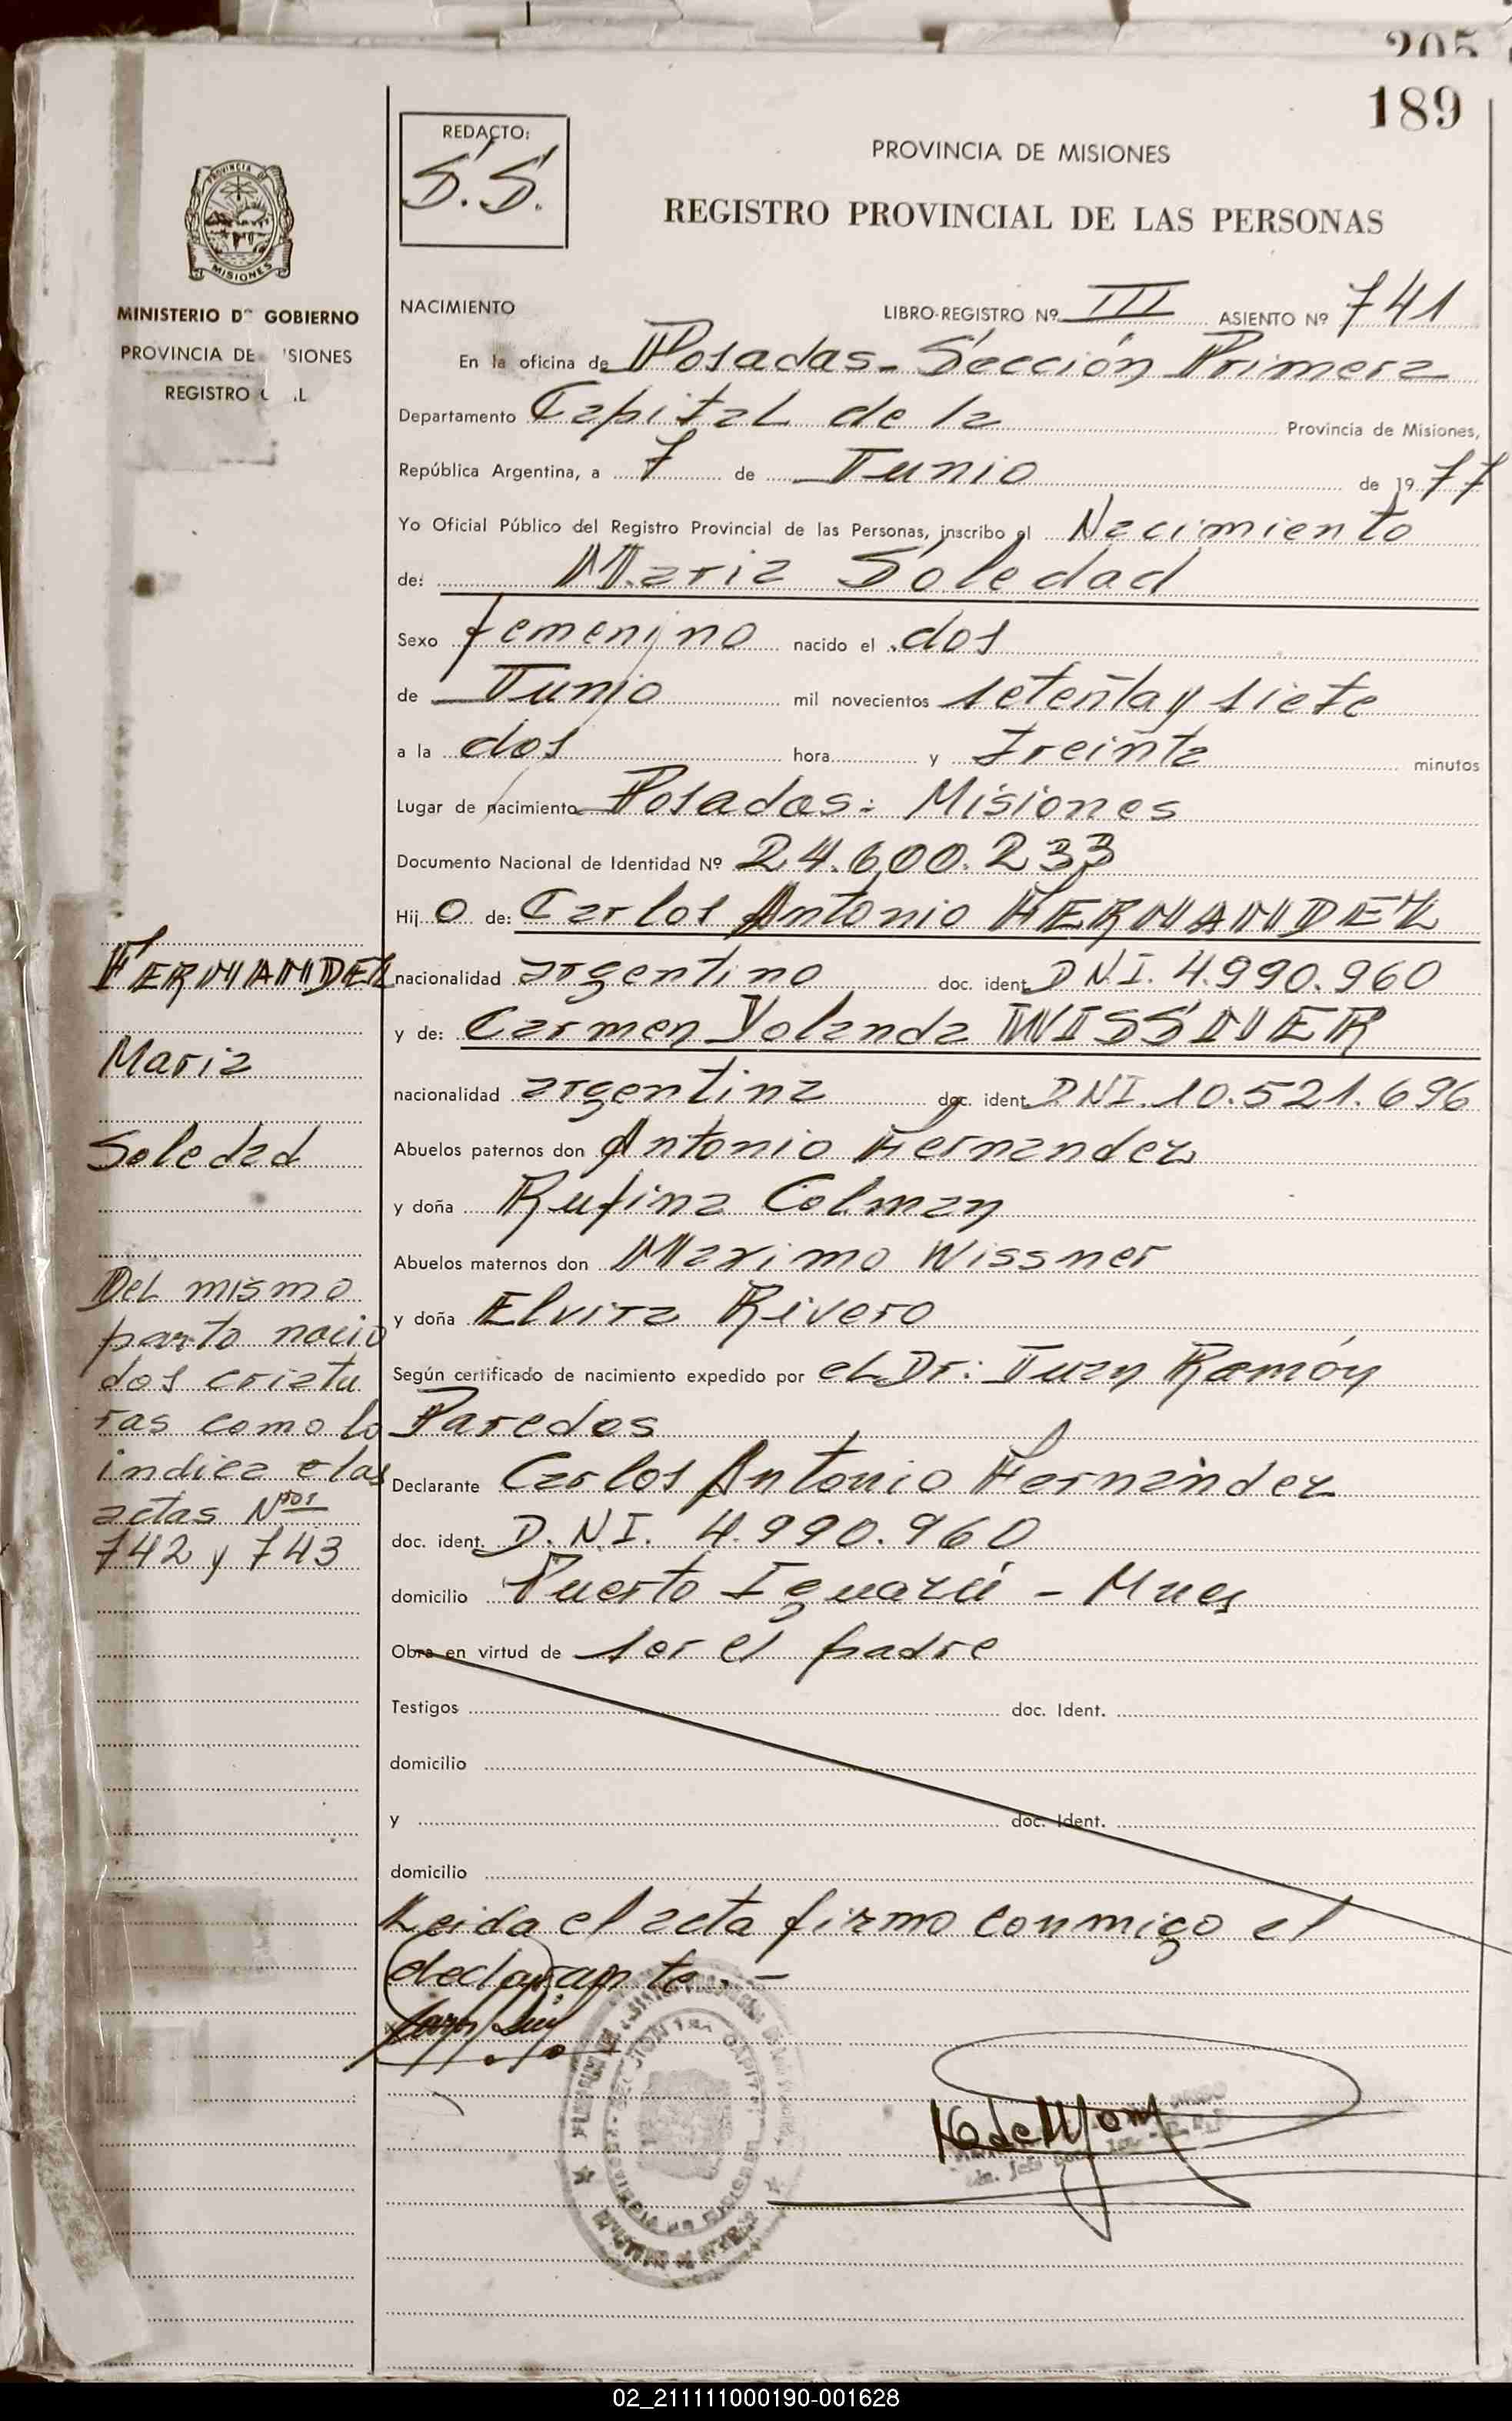 205
189
REDACTO:
S.S.
PROVINCIA DE MISIONES
REGISTRO PROVINCIAL DE LAS PERSONAS
PROVINCIA DE
MISIONES
MINISTERIO D GOBIERNO
PROVINCIA DE ISIONES
REGISTRO L
NACIMIENTO LIBRO-REGISTRO Nº III ASIENTO Nº 741
En la oficina de Posadas - Sección Primera
Departamento Capital de la Provincia de Misiones,
República Argentina, a 7 de Junio de 1977
Yo Oficial Público del Registro Provincial de las Personas, inscribo el Nacimiento
de: Maria Soledad
Sexo femenino nacido el dos
de Junio mil novecientos setenta y siete
a la dos hora y treinta minutos
Lugar de nacimiento Posadas: Misiones
Documento Nacional de Identidad Nº 24.600.233
Hij o de: Carlos Antonio FERNANDEZ
nacionalidad argentino doc. ident. DNI. 4.990.960
y de: Carmen Yolanda WISSNER
nacionalidad argentina doc. ident. DNI. 10.521.696
Abuelos paternos don Antonio Fernandez
y doña Rufina Colman
Abuelos maternos don Maximo Wissner
y doña Elvira Rivero
Según certificado de nacimiento expedido por el Dr: Juan Ramón
Paredes
Declarante Carlos Antonio Fernández
doc. ident. D.N.I. 4.990.960
domicilio Puerto Iguazú - Mnes
Obra en virtud de ser el padre
Testigos doc. Ident.
domicilio
y doc. Ident.
domicilio
Leida el acta firmo conmigo el
declarante. -
FERNANDEZ
Maria
Soledad
Del mismo
parto nacio
dos criatu
ras como lo
indica e las
actas Nros
742 y 743
02_211111000190-001628